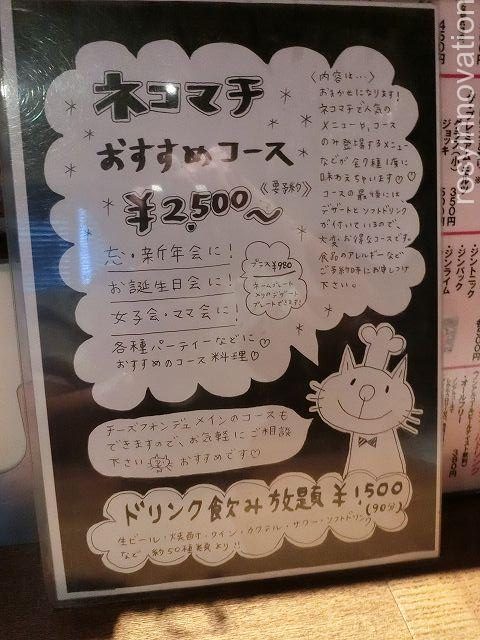 ネコマチ
おすすめコース
¥2,500〜
《要予約》
忘・新年会に！
お誕生日会に！
女子会・ママ会に！
各種パーティーなどに
おすすめのコース料理♡
プラス¥980
ネームプレート、
メインのデザート
プレートできます！
〈内容は…〉
おまかせになります！
ネコマチで人気の
メニューや、コース
のみ登場するメニュー
などが全7種1度に
味わえちゃいます♡♡
コースの最後には
デザートとソフトドリンク
が付いているので、
大変お得なコースです。
食品のアレルギーなど
ご予約時にお申しつけ
下さい。
チーズフォンデュメインのコースも
できますので、お気軽にご相談
下さい おすすめです♡
ドリンク飲み放題 ¥1,500
(90分)
生ビール・焼酎・ワイン・カクテル・サワー・ソフトドリンク
など 約50種類より!!
ジョッキ
・ジントニック
・ジンバック
・ジンライム
・オールフリー
rosyinnovation